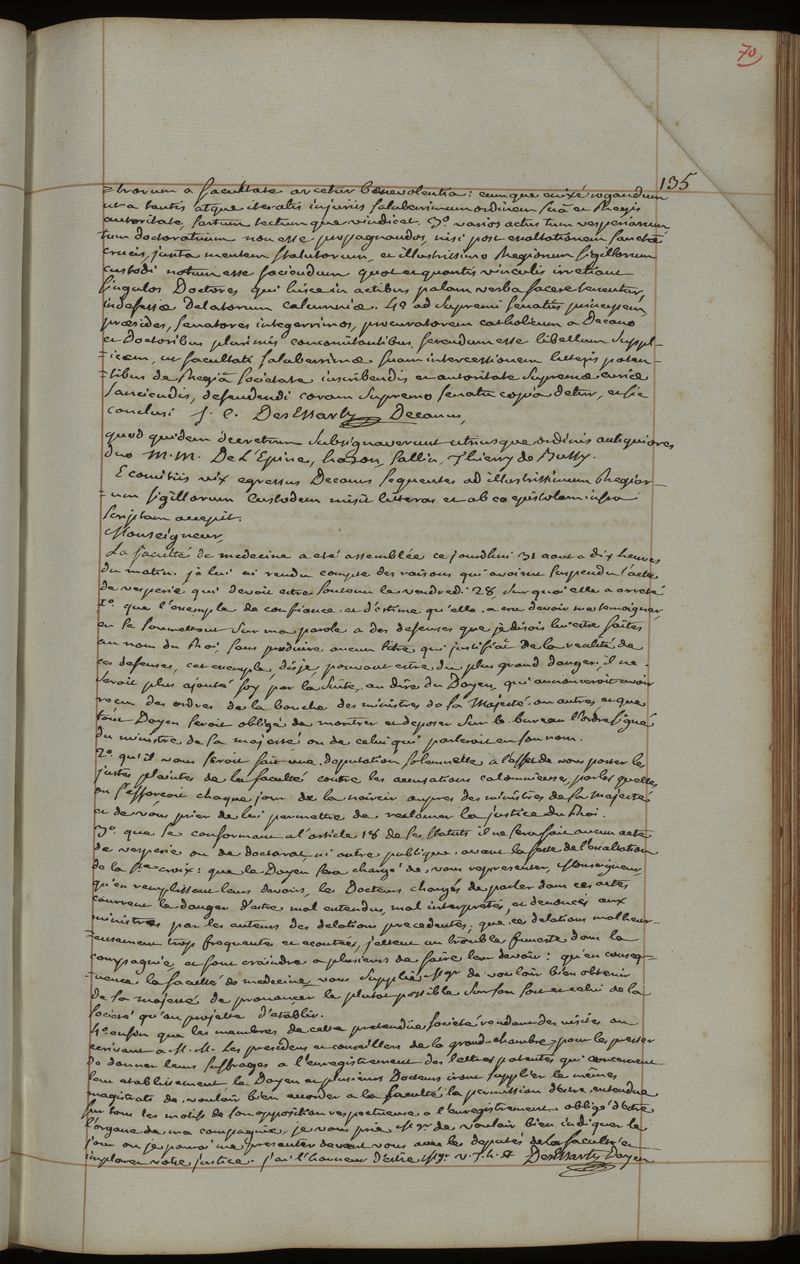 70
135
=trorum a facultate arcetur benevolentia: eumque enixé rogandum
ut a tantis atque iteratis injuriis saluberrimum ordinem suâ et Regis
autoritate, sartum tectumque vindicet. 3º. varios actus tum vesperiarum
tum doctoratuum non esse propagnandos, nisi post exaltationem sanctæ
crucis, juxta mentem statutorum, et illustrissimo Regiorum sigillorum
custodi notum esse faciendum quot et quantis vinculis irretiant
singulos Doctores qui hisce in actibus palam verba facere tenentur,
indefessæ Delatorum calumniæ. 4º. ad supremi senatus principem,
præsides, senatores integerrimos, procuratorem catholicum a Decano
et Doctoribus plurimis concomitantibus, ferendum esse libellum suppl-
=icem, ut facultati saluberrimæ suam intercessionem litteris paten-
=tibus de Regiâ societate inscribendis et autoritate supremæ curiæ
sanciendis, defendendi coram supremo senatu copia detur, et sic
conclusi J. C. DesEssartz Decanus,
quod quidem decretum subsignaverunt utriusque ordinis antiquiores
duo M. M. De L'Epine, hazon, Sallin, Thierry de Bussy.
E comitiis vix egressus Decanus sequentes ad illustrissimum Regior-
=um sigillorum custodem misit litteras et ab eo epistolam infra
scriptam accepit.
Monseigneur,
La faculté de medecine a eté assemblée ce jourdhui 31 aout a dix heures
du matin. je lui ai rendu compte des raisons qui avoient suspendu l'acte
de vesperie qui devoit estre soutenu le vendredi 28, sur quoi elle a arreté
1º. que l'exemple de confiance et d'estime qu'elle a cru devoir me temoigner,
en se soumettant sur ma parole a des defenses que je disois lui etre faites
au nom du Roi, sans produire aucun titre qui justifiât de la realité de
ces defenses, cet exemple, disje, pouvant etre du plus grand danger, il ne
seroit plus ajouté foy par la suite, au dire du Doyen, qui annonceroit avoir
reçu des ordres de la bouche des ministres de sa Majesté, ou autres et que
tout Doyen seroit obligé de montrer et deposer sur le bureau l'ordre signé
du ministre de sa majesté ou de celui qui parleroit en son nom.
2º. qu'il vous seroit fait une deputation solemnelle à l'effet de vous porter les
justes plaintes de la faculté contre les accusations calomnieuses, par lesquelles
on s'efforçoit chaque jour de la noircir aupres des ministres de sa Majesté
et de vous prier de lui permettre de reclamer la justice du Roi.
3º. que se conformant a l'article 18 de ses statuts il ne sera fait aucun acte
de vesperie ou de doctorat, ni autre publique avant la feste de l'exaltation
de la ste croix: que le Doyen sera chargé de vous representer, Monseigneur,
qu'en remplissant leurs devoirs, les Docteurs chargés de parler dans ces actes
courrent le danger d'etre mal entendus, mal interpretés, et denoncés aux
ministres par les auteurs des delations precedentes; que ces delations malheur-
=eusement trop frequentes et ecoutées, jettent un trouble funeste dans la
compagnie, et font craindre a plusieurs de faire leur devoir: qu'en conseq-
=uence la faculté de medecine vous supplie Mgr. de vouloir bien obtenir
de sa majesté de prononcer le plutot possible sur son sort et celui de la
société qu'on projette d'etablir.
4º. enfin que les membres de cette pretendüe société rendant des visites ou
ecrivant a M. M. les presidens et conseillers de la grand-chambre, pour les presser
de donner leurs suffrages a l'enregistrement des lettres patentes qui concernent
leur etablissement le Doyen et plusieurs Docteurs iront supplier les mêmes
magistrats de vouloir bien accorder a la faculté la permission d'estre entendue
sur tous les motifs de son opposition respectueuse a l'enregistrement. obligé d'etre
l'organe de ma compagnie, je vous prie Mgr. de vouloir bien indiquer le
jour ou je pourai me presenter devant vous avec les deputés de la faculté et
implorer votre justice. j'ai l'honneur d'estre Mgr. v. t. h. &c DesEssartz Doyen